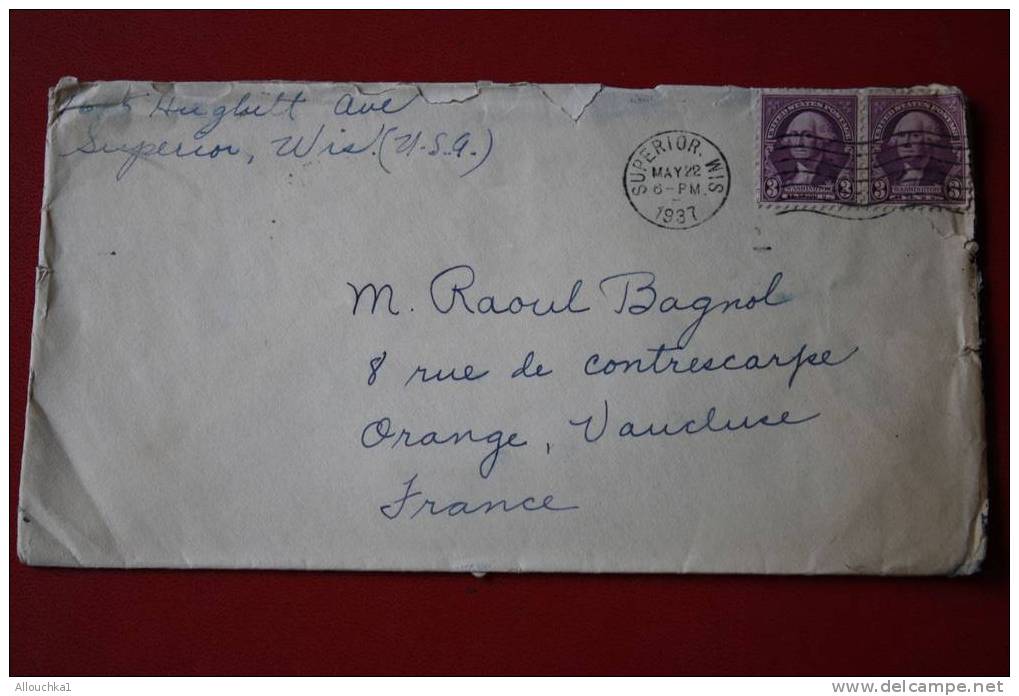 Hughitt Ave
Superior, Wis. (U.S.A.)
SUPERIOR, WIS.
MAY 22
6-PM
1937
UNITED STATES POSTAGE
3 WASHINGTON 3
UNITED STATES POSTAGE
3 WASHINGTON 3
M. Raoul Bagnol
8 rue de contrescarpe
Orange, Vaucluse
France
Allouchka1
www.delcampe.net